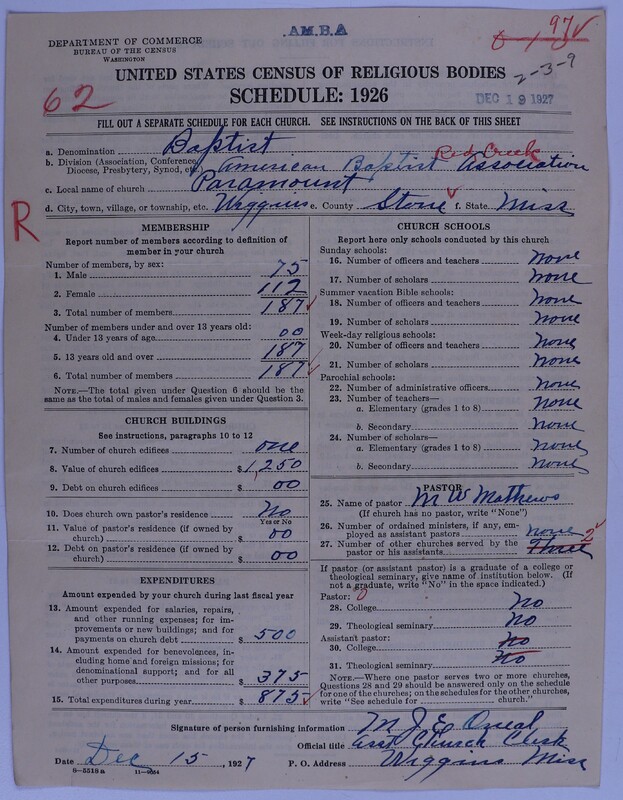 A.M.B.A
DEPARTMENT OF COMMERCE
BUREAU OF THE CENSUS
WASHINGTON
97V
2-3-9
UNITED STATES CENSUS OF RELIGIOUS BODIES
SCHEDULE: 1926
62
DEC 19 1927
FILL OUT A SEPARATE SCHEDULE FOR EACH CHURCH. SEE INSTRUCTIONS ON THE BACK OF THIS SHEET
a. Denomination Baptist
b. Division (Association, Conference, Diocese, Presbytery, Synod, etc. American Baptist Red Creek Association
c. Local name of church Paramount
d. City, town, village, or township, etc. Wiggins e. County Stone f. State Miss
R
MEMBERSHIP
Report number of members according to definition of
member in your church
Number of members, by sex:
1. Male 75
2. Female 112
3. Total number of members 187
Number of members under and over 13 years old:
4. Under 13 years of age 00
5. 13 years old and over 187
6. Total number of members 187
NOTE.—The total given under Question 6 should be the
same as the total of males and females given under Question 3.
CHURCH BUILDINGS
See instructions, paragraphs 10 to 12
7. Number of church edifices one
8. Value of church edifices $1,250
9. Debt on church edifices $ 00
10. Does church own pastor's residence? No
Yes or No
11. Value of pastor's residence (if owned by
church) $ 00
12. Debt on pastor's residence (if owned by
church) $ 00
EXPENDITURES
Amount expended by your church during last fiscal year
13. Amount expended for salaries, repairs,
and other running expenses; for im-
provements or new buildings; and for
payments on church debt $ 500
14. Amount expended for benevolences, in-
cluding home and foreign missions; for
denominational support; and for all
other purposes $ 375
15. Total expenditures during year $ 875
CHURCH SCHOOLS
Report here only schools conducted by this church
Sunday schools:
16. Number of officers and teachers none
17. Number of scholars none
Summer vacation Bible schools:
18. Number of officers and teachers none
19. Number of scholars none
Week-day religious schools:
20. Number of officers and teachers none
21. Number of scholars none
Parochial schools:
22. Number of administrative officers none
23. Number of teachers—
a. Elementary (grades 1 to 8) none
b. Secondary none
24. Number of scholars—
a. Elementary (grades 1 to 8) none
b. Secondary none
PASTOR
25. Name of pastor M W Mathews
(If church has no pastor, write "None")
26. Number of ordained ministers, if any, em-
ployed as assistant pastors none
27. Number of other churches served by the
pastor or his assistants Three 2
If pastor (or assistant pastor) is a graduate of a college or
theological seminary, give name of institution below. (If
not a graduate, write "No" in the space indicated.)
Pastor: 0
28. College No
29. Theological seminary No
Assistant pastor:
30. College No
31. Theological seminary No
NOTE.—Where one pastor serves two or more churches,
Questions 28 and 29 should be answered only on the schedule
for one of the churches; on the schedules for the other churches,
write "See schedule for church."
Signature of person furnishing information M J E Oneal
Official title Asst Church Clerk
Date Dec 15, 1927 P. O. Address Wiggins Miss
8-5518 a